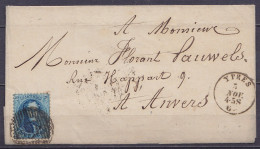 A Monsieur
Monsieur Florant Pauwels
Rue Happart 9.
A Anvers
YPRES
7
NOV
4-5S